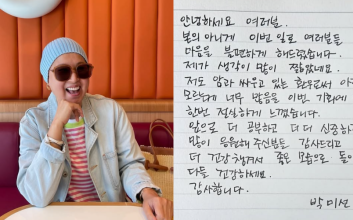 안녕하세요 여러분.
본의 아니게 이번 일로 여러분들
마음을 불편하게 해드렸습니다.
제가 생각이 많이 짧았네요.
저도 암과 싸우고 있는 환우로써 아
모르는게 너무 많음을 이번 기회에
한번 절실하게 느꼈습니다.
앞으로 더 공부하고 더 더 신중하
많이 응원해 주신분들 감사드리고
더 건강 챙겨서 좋은 모습으로 돌
다들 건강하세요.
감사합니다.
박미선